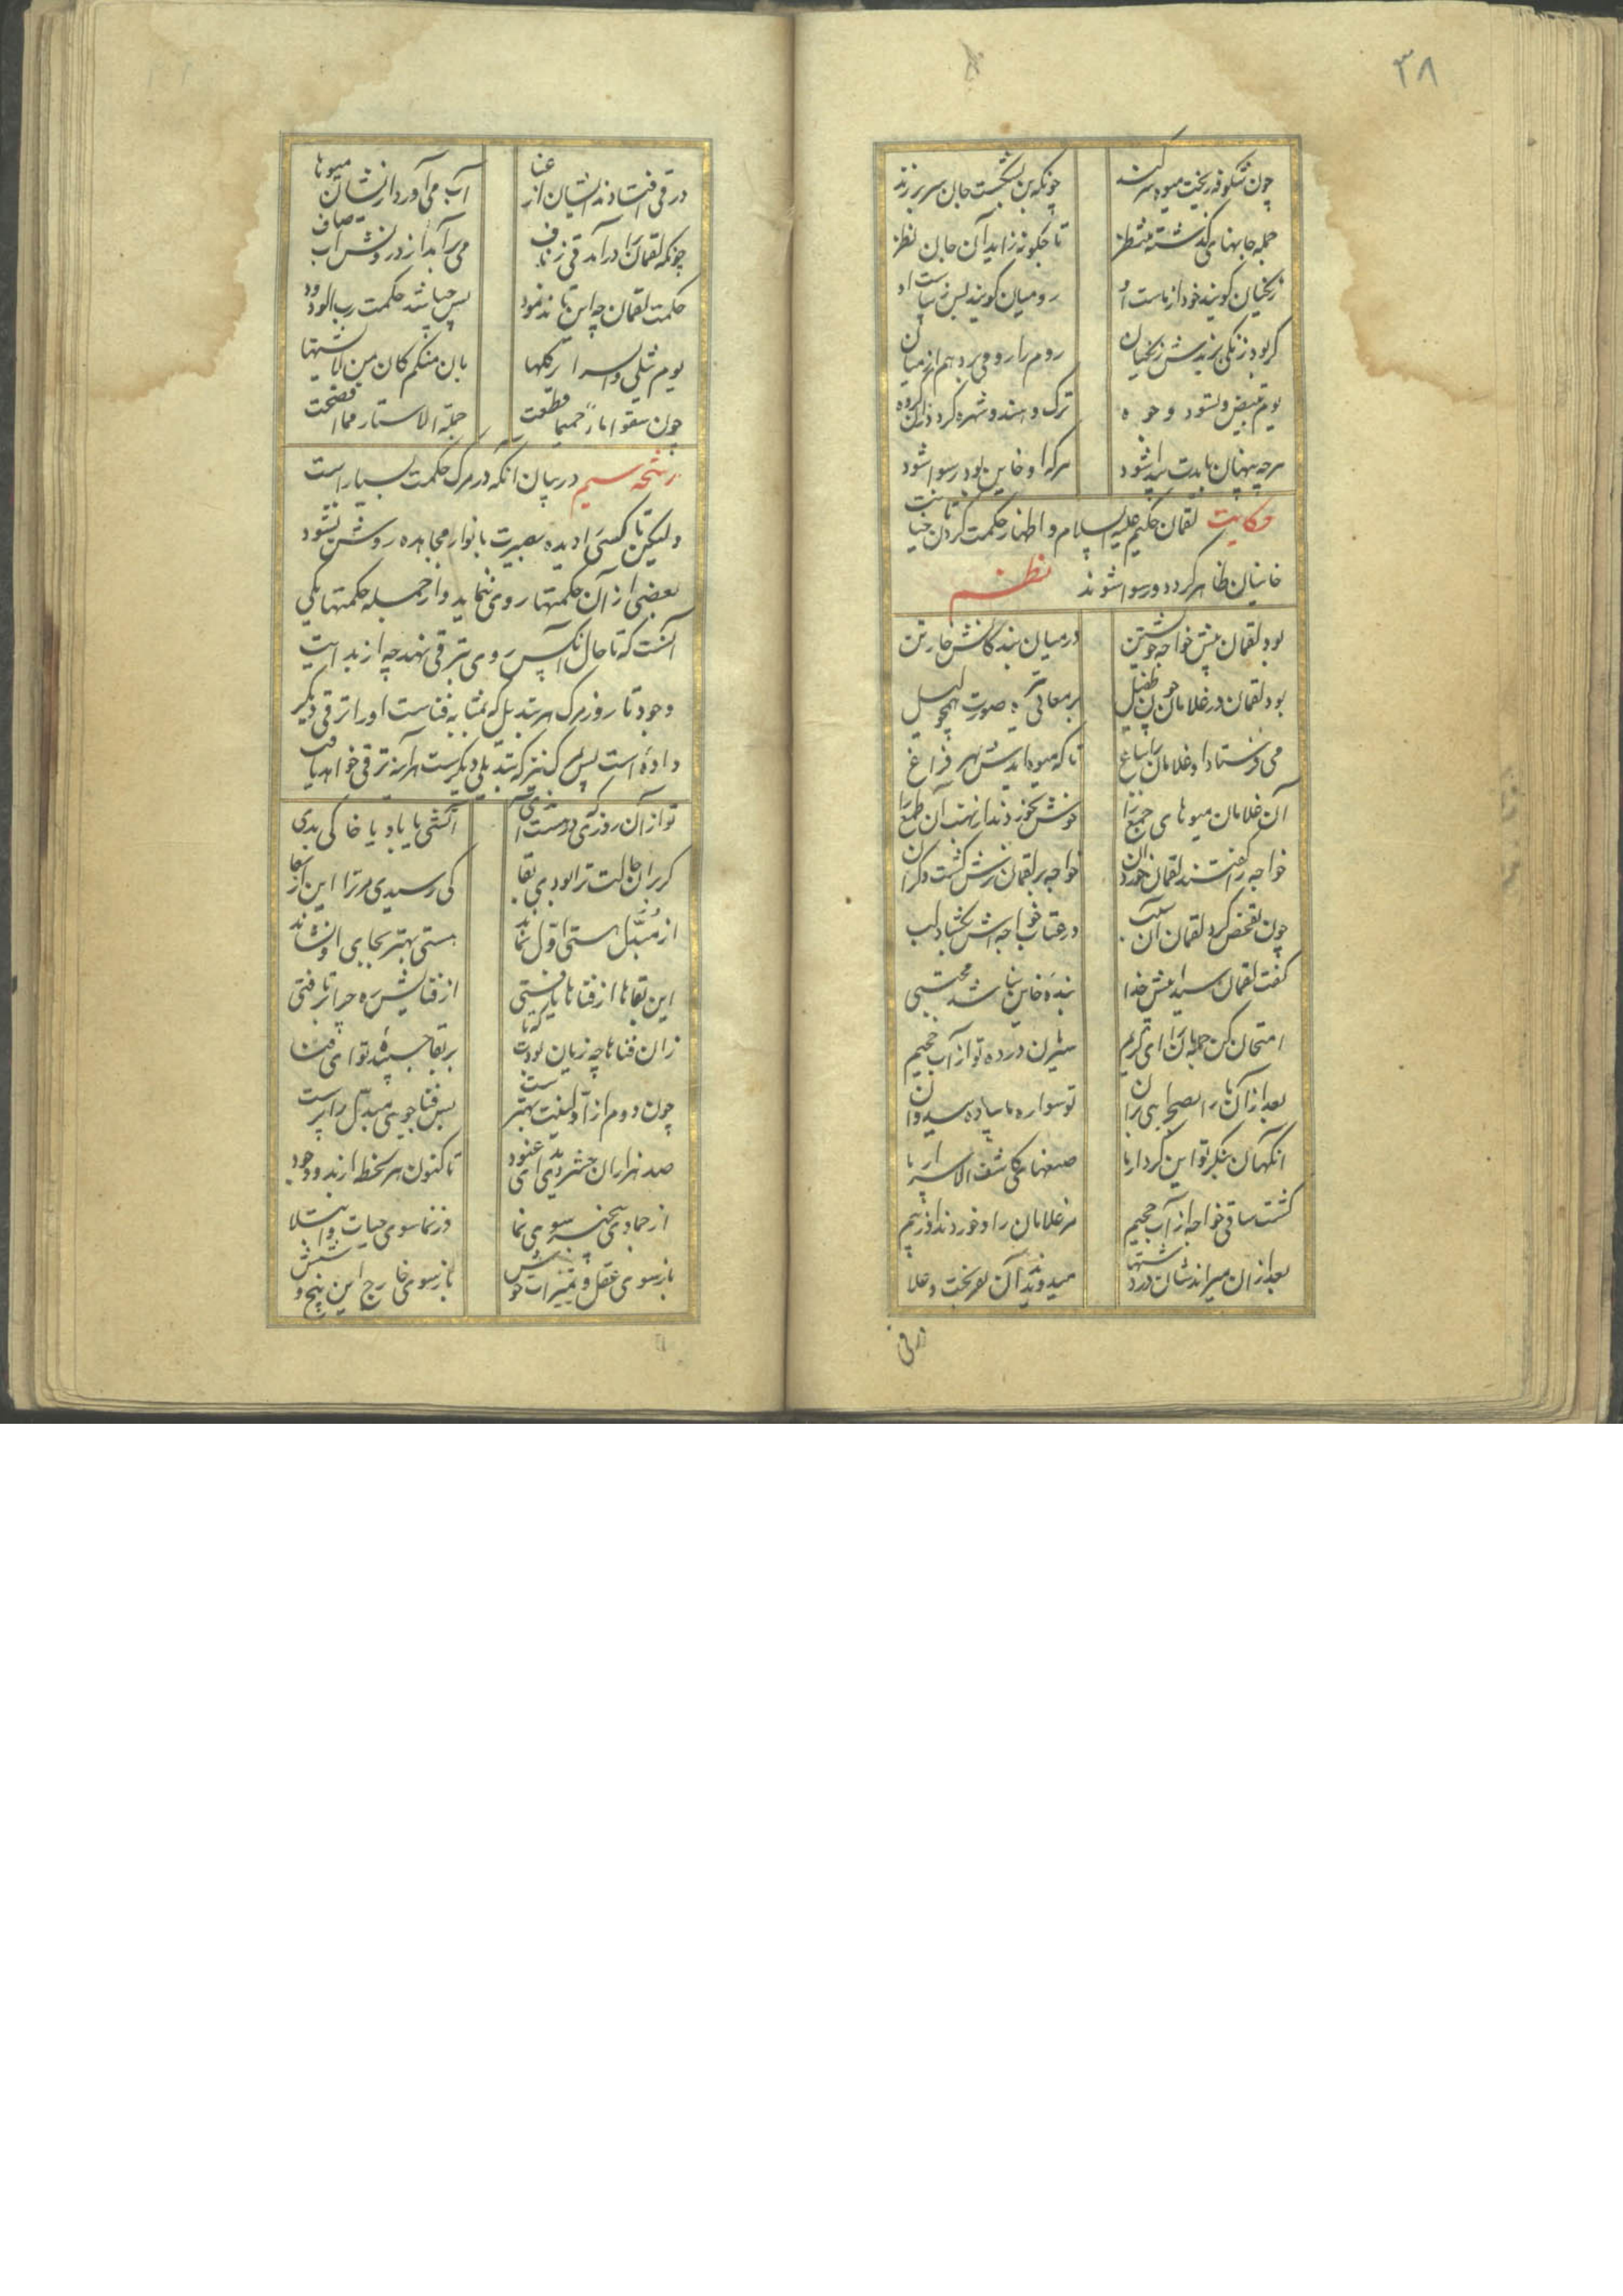 ۳۸
چون شکوفه ریخت میوه سر کند چونکه تن بشکست جان سر بر زند
جمله جانهای گذشته منتظر تا چگونه زاید آن جان نظر
زنگیان گویند خود از ماست او رومیان گویند بس زیباست او
گر بود زنگی برندش زنگیان روم را رومی برد هم از میان
یوم تبیض و تسود وجوه ترک و هندو شهره گردد زان گروه
هرچه پنهان باشد پیدا شود هرکه او خاین بود رسوا شود
حکایت لقمان حکیم علیه السلام و اظهار حکمت کردن تا خیانت
خاینان ظاهر گردد و رسوا شوند نظم
بود لقمان پیش خواجه خویشتن در میان بندگانش خار تن
بود لقمان در غلامان چون طفیل بر معانی تیره صورت همچو لیل
می فرستاد او غلامان را بباغ تا که میوه آیدش بهر فراغ
آن غلامان میوهای جمع را خوش بخوردند از نهیب آن طمع را
خواجه را گفتند لقمان خورد آن خواجه بر لقمان ترش گشت و گران
چون تفحص کرد لقمان آن سبب در عتاب خواجه اش بگشاد لب
گفت لقمان سیدا پیش خدا بنده خاین نباشد مجتبی
امتحان کن جمله مان را ای کریم سیرمان در ده تو از آب حمیم
بعد از آن ما را بصحرا می بران تو سواره ما پیاده میدوان
انگهان بنگر تو این کردارها صنعهای کاشف الاسرارها
گشت ساقی خواجه از آب حمیم مر غلامان را و خوردند از بیم
بعد از آن میراندشان در دشتها میدویدند آن نفر تخت و علا
در قی
در قی افتادند ایشان از عنا آب می آورد ازیشان میوها
چونکه لقمان را درآمد قی ز ناف می برآمد از درونش آب صاف
حکمت لقمان چو این تاند نمود پس چه باشد حکمت رب الودود
یوم تبلی والسرایر کلها بان منکم کامن لا یشتهی
چون سقوا ماء حمیما قطعت جملة الاستار مما افضحت
رشحه سیم در بیان آنکه در مرگ حکمت بسیار است
ولیکن تا کسی را دیده بصیرت بانوار مجاهده روشن نشود
بعضی از آن حکمتها روی ننماید و از جمله حکمتها یکی
آنست که تا حال آنکس روی بترقی نهد چه از بدایت
وجود تا روز مرگ هر تبدیل که بمثابه فناست او را ترقی دیگر
داده است پس مرگ نیز که تبدیلی دیگرست هر آینه ترقی خواهد یافت
تو از آن روزی که در هست آمدی آتشی یا باد یا خاکی بدی
گر بر آن حالت ترا بودی بقا کی رسیدی مر ترا این ارتقا
از مبدل هستی اول نماند هستی بهتر بجای او نشاند
این بقاها از فناها یافتی از فنایش رو چرا برتافتی
زان فناها چه زیان بودت که تا بر بقا چسبیده تو ای فتا
چون دوم از اولینت بهترست پس فنا جوی و مبدل را پرست
صد هزاران حشر دیدی ای عنود تا کنون هر لحظه از بدو وجود
از جمادی بیخبر سوی نما وز نما سوی حیات و ابتلا
باز سوی عقل و تمییزات خوش باز سوی خارج این پنج و شش